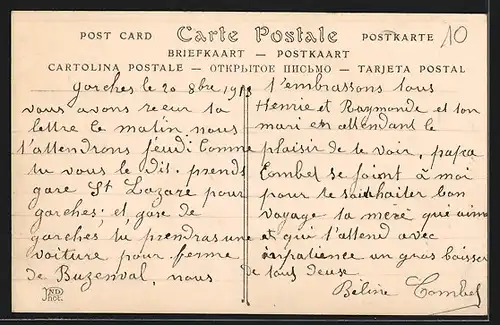 POST CARD Carte Postale POSTKARTE
10
BRIEFKAART — POSTKAART
CARTOLINA POSTALE — ОТКРЫТОЕ ПИСЬМО — TARJETA POSTAL
garches le 20 8bre 1913
nous avons reçu ta
lettre le matin, nous
t'attendrons jeudi comme
tu vous le dis. prends
gare St Lazare pour
garches; et gare de
garches tu prendras une
voiture pour ferme
de Buzenval, nous
t'embrassons tous
Henrie et Raymonde et ton
mari en attendant le
plaisir de te voir, papa
Combel se joint à moi
pour te souhaiter bon
voyage ta mère qui aime
et qui t'attend avec
impatience un gros baiser
de tous deuse
Béline Combel
ND
Phot.